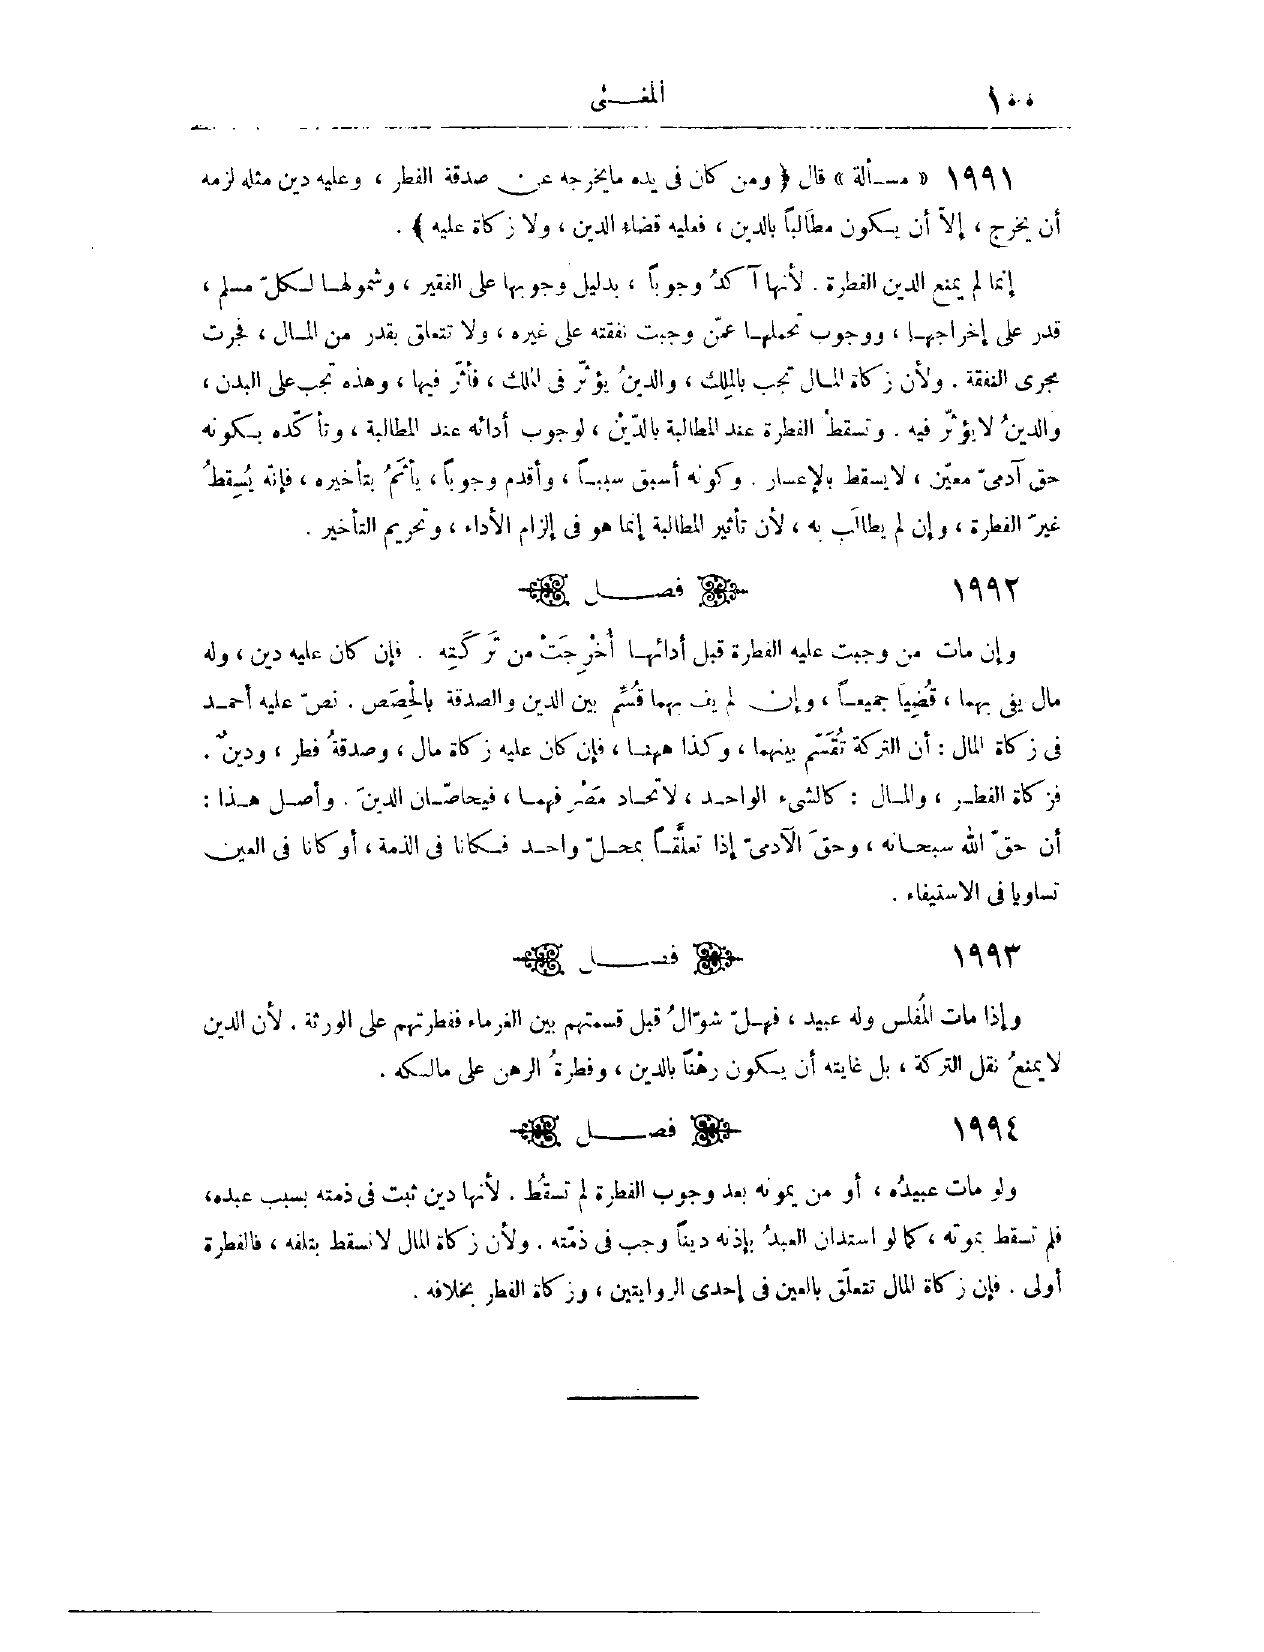 ١٠٠
المغـنى
١٩٩١ « مسـألة » قال ﴿ ومن كان فى يده مايخرجه عن صدقة الفطر ، وعليه دين مثله لزمه
أن يخرج ، إلاّ أن يكون مطالَباً بالدين ، فعليه قضاء الدين ، ولا زكاة عليه ﴾ .
إنما لم يمنع الدين الفطرة . لأنها آكدُ وجوباً ، بدليل وجوبها على الفقير ، وشمولها لكلّ مسلم ،
قدر على إخراجها ، ووجوب تحملها عمّن وجبت نفقته على غيره ، ولا تتعلق بقدر من المال ، فجرت
مجرى النفقة . ولأن زكاة المال تجب بالمِلك ، والدينُ يؤثّر فى الملك ، فأثّر فيها ، وهذه تجب على البدن ،
والدينُ لايؤثّر فيه . وتسقط الفطرة عند المطالبة بالدّيْن ، لوجوب أدائه عند المطالبة ، وتأكّده بكونه
حق آدمىّ معيّن ، لايسقط بالإعسار . وكونه أسبق سبباً ، وأقدم وجوباً ، يأثمُ بتأخيره ، فإنّه يُسقِطُ
غيرّ الفطرة ، وإن لم يطالَب به ، لأن تأثير المطالبة إنما هو فى إلزام الأداء ، وتحريم التأخير .
١٩٩٢ فصـــل
وإن مات من وجبت عليه الفطرة قبل أدائها أُخْرِجَتْ من تَركَتِه . فإن كان عليه دين ، وله
مال يفى بهما ، قُضِيَا جميعاً ، وإن لم يف بهما قُسِّم بين الدين والصدقة بالحِصَص . نصّ عليه أحمد
فى زكاة المال : أن التركة تُقَسَّم بينهما ، وكذا ههنا ، فإن كان عليه زكاة مال ، وصدقةُ فطر ، ودينٌ .
فزكاة الفطر ، والمال : كالشىء الواحد ، لاتحاد مَصْرِفهما ، فيحاصّان الدينَ . وأصل هذا :
أن حقّ الله سبحانه ، وحقَ الآدمىّ إذا تعلَّقاً بمحلّ واحد فكانا فى الذمة ، أو كانا فى العين
تساويا فى الاستيفاء .
١٩٩٣ فصـــل
وإذا مات المُفلس وله عبيد ، فهلّ شوّالُ قبل قسمتهم بين الغرماء ففطرتهم على الورثة . لأن الدين
لايمنعُ نقل التركة ، بل غايته أن يكون رهْناً بالدين ، وفطرةُ الرهن على مالكه .
١٩٩٤ فصـــل
ولو مات عبيدُه ، أو من يمونه بعد وجوب الفطرة لم تسقُط . لأنها دين ثبت فى ذمته بسبب عبده،
فلم تسقط بموته ، كما لو استدان العبدُ بإذنه ديناً وجب فى ذمّته . ولأن زكاة المال لاتسقط بتلفه ، فالفطرة
أولى . فإن زكاة المال تتعلّق بالعين فى إحدى الروايتين ، وزكاة الفطر بخلافه .